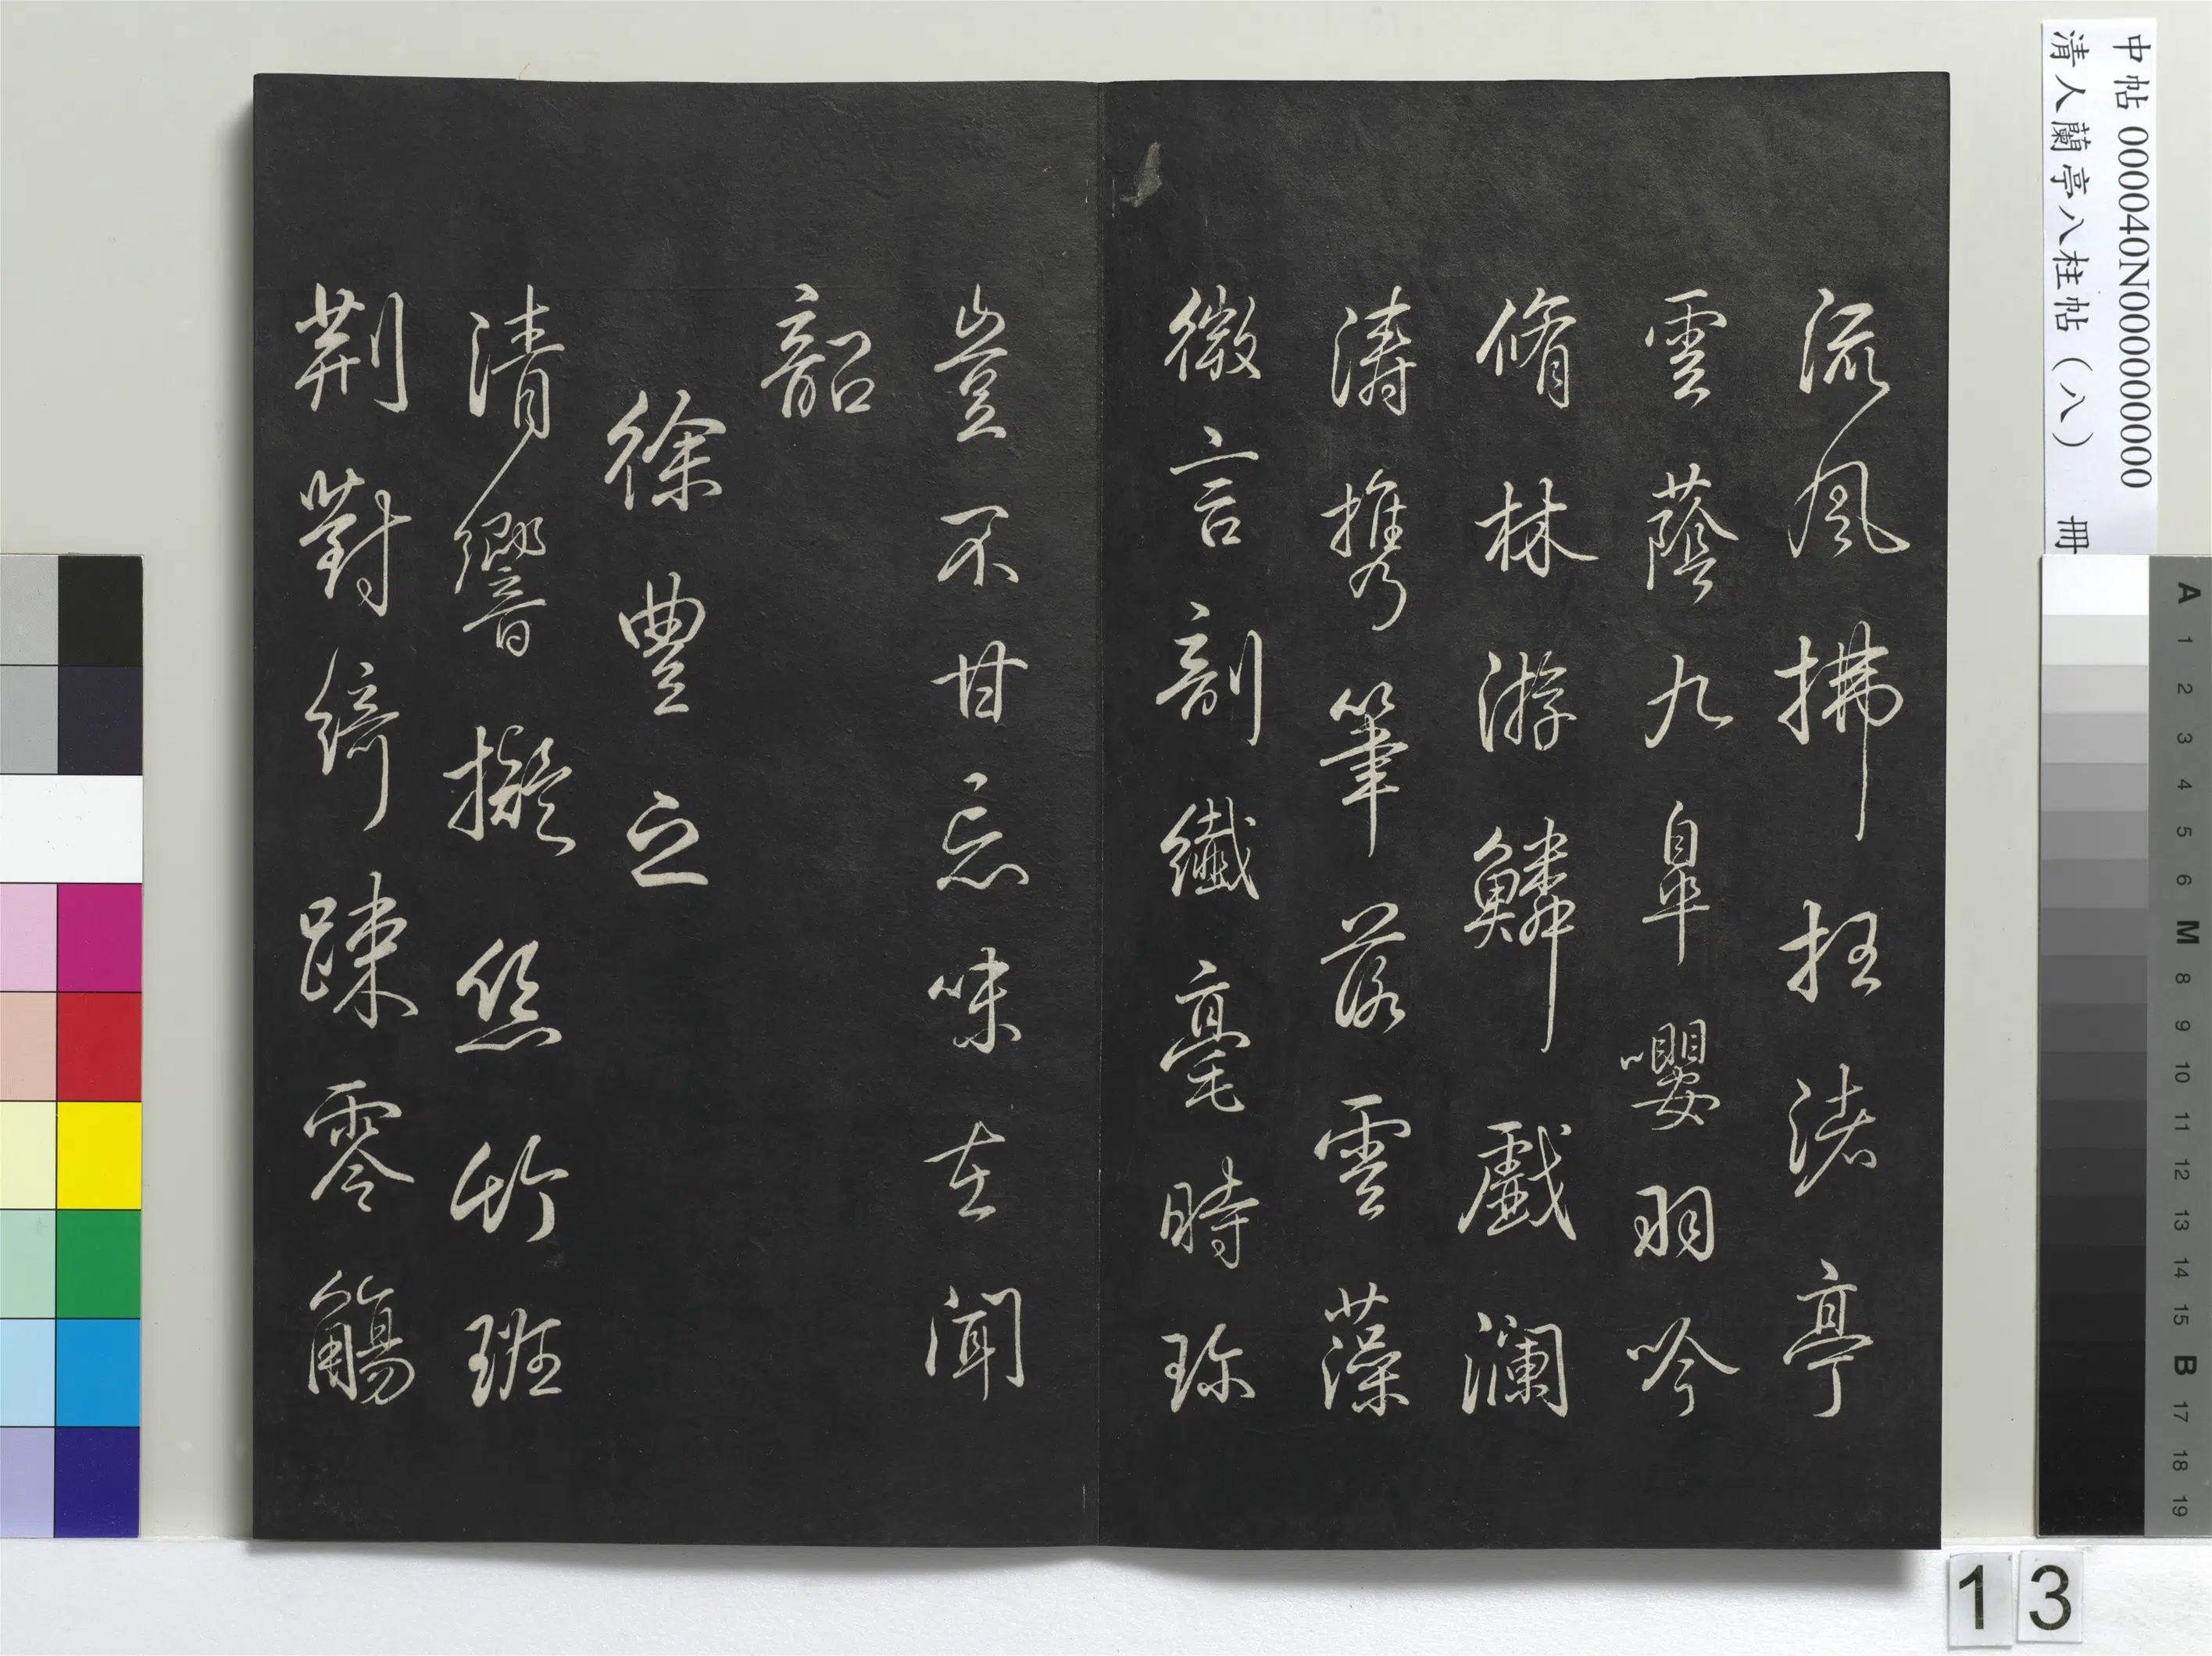 流風拂抂渚亭
雲蔭九皐嚶羽吟
脩林游鱗戲瀾
濤擕筆落雲藻
微言剖纖毫時珎
豈不甘忘味在聞
韶
徐豐之
清響擬絲竹班
荆對綺疎零觴
中帖 000040N000000000
清人蘭亭八柱帖（八） 冊
A 1 2 3 4 5 6 M 8 9 10 11 12 13 14 15 B 17 18 19
13